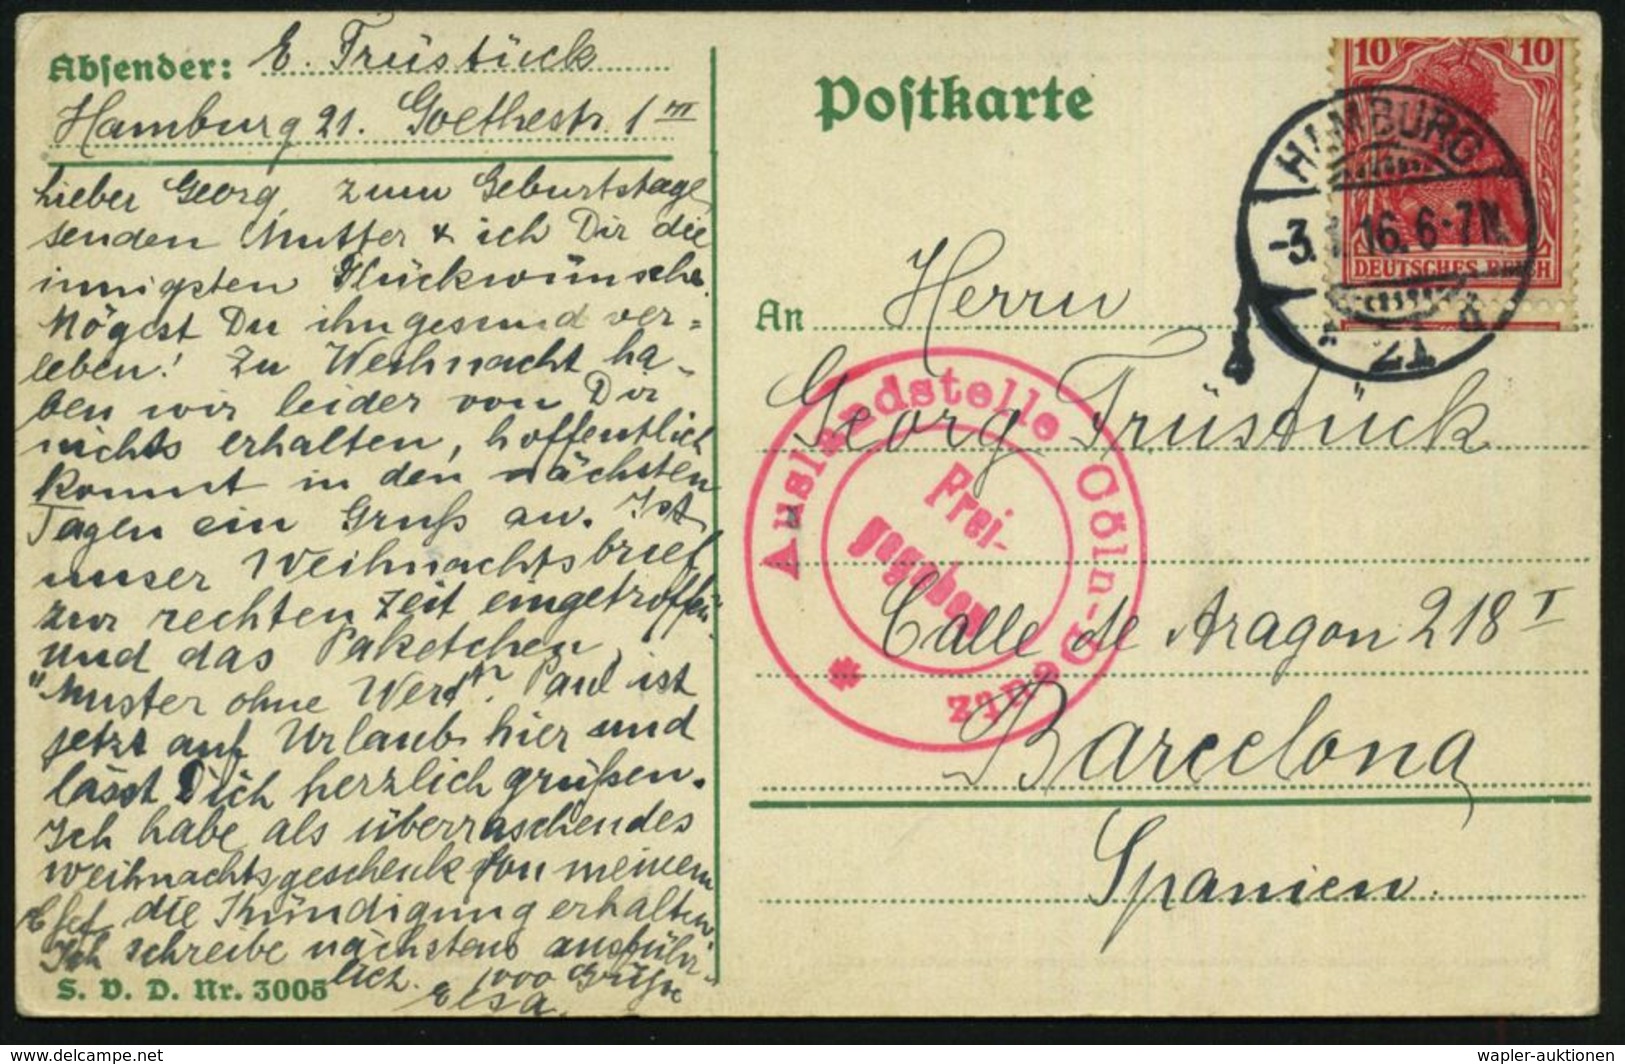 Absender: E. Früstück
Hamburg 21. Goethestr. 1 III
Lieber Georg, zum Geburtstage
senden Mutter & ich Dir die
innigsten Glückwünsche.
Mögest Du ihn gesund ver=
leben! Zu Weihnacht ha-
ben wir leider von Dir
nichts erhalten, hoffentlich
kommt in den nächsten
Tagen ein Gruß an. Ist
unser Weihnachtsbrief
zur rechten Zeit eingetroffen
und das Paketchen
"Muster ohne Wert"? Paul ist
jetzt auf Urlaub hier und
lässt Dich herzlich grüßen.
Ich habe als überraschendes
Weihnachtsgeschenk von meinem
Chef die Kündigung erhalten.
Ich schreibe nächstens ausführ-
lich. 1000 Grüße
Elsa.
S. V. D. Nr. 3005
Postkarte
10 10
DEUTSCHES REICH
HAMBURG
-3.1.16. 6-7N.
* 21 d
An Herrn
Georg Früstück
Calle de Aragon 218 I
Barcelona
Spanien.
Auslandstelle Cöln-Deutz *
Frei-
gegeben
wapler-auktionen